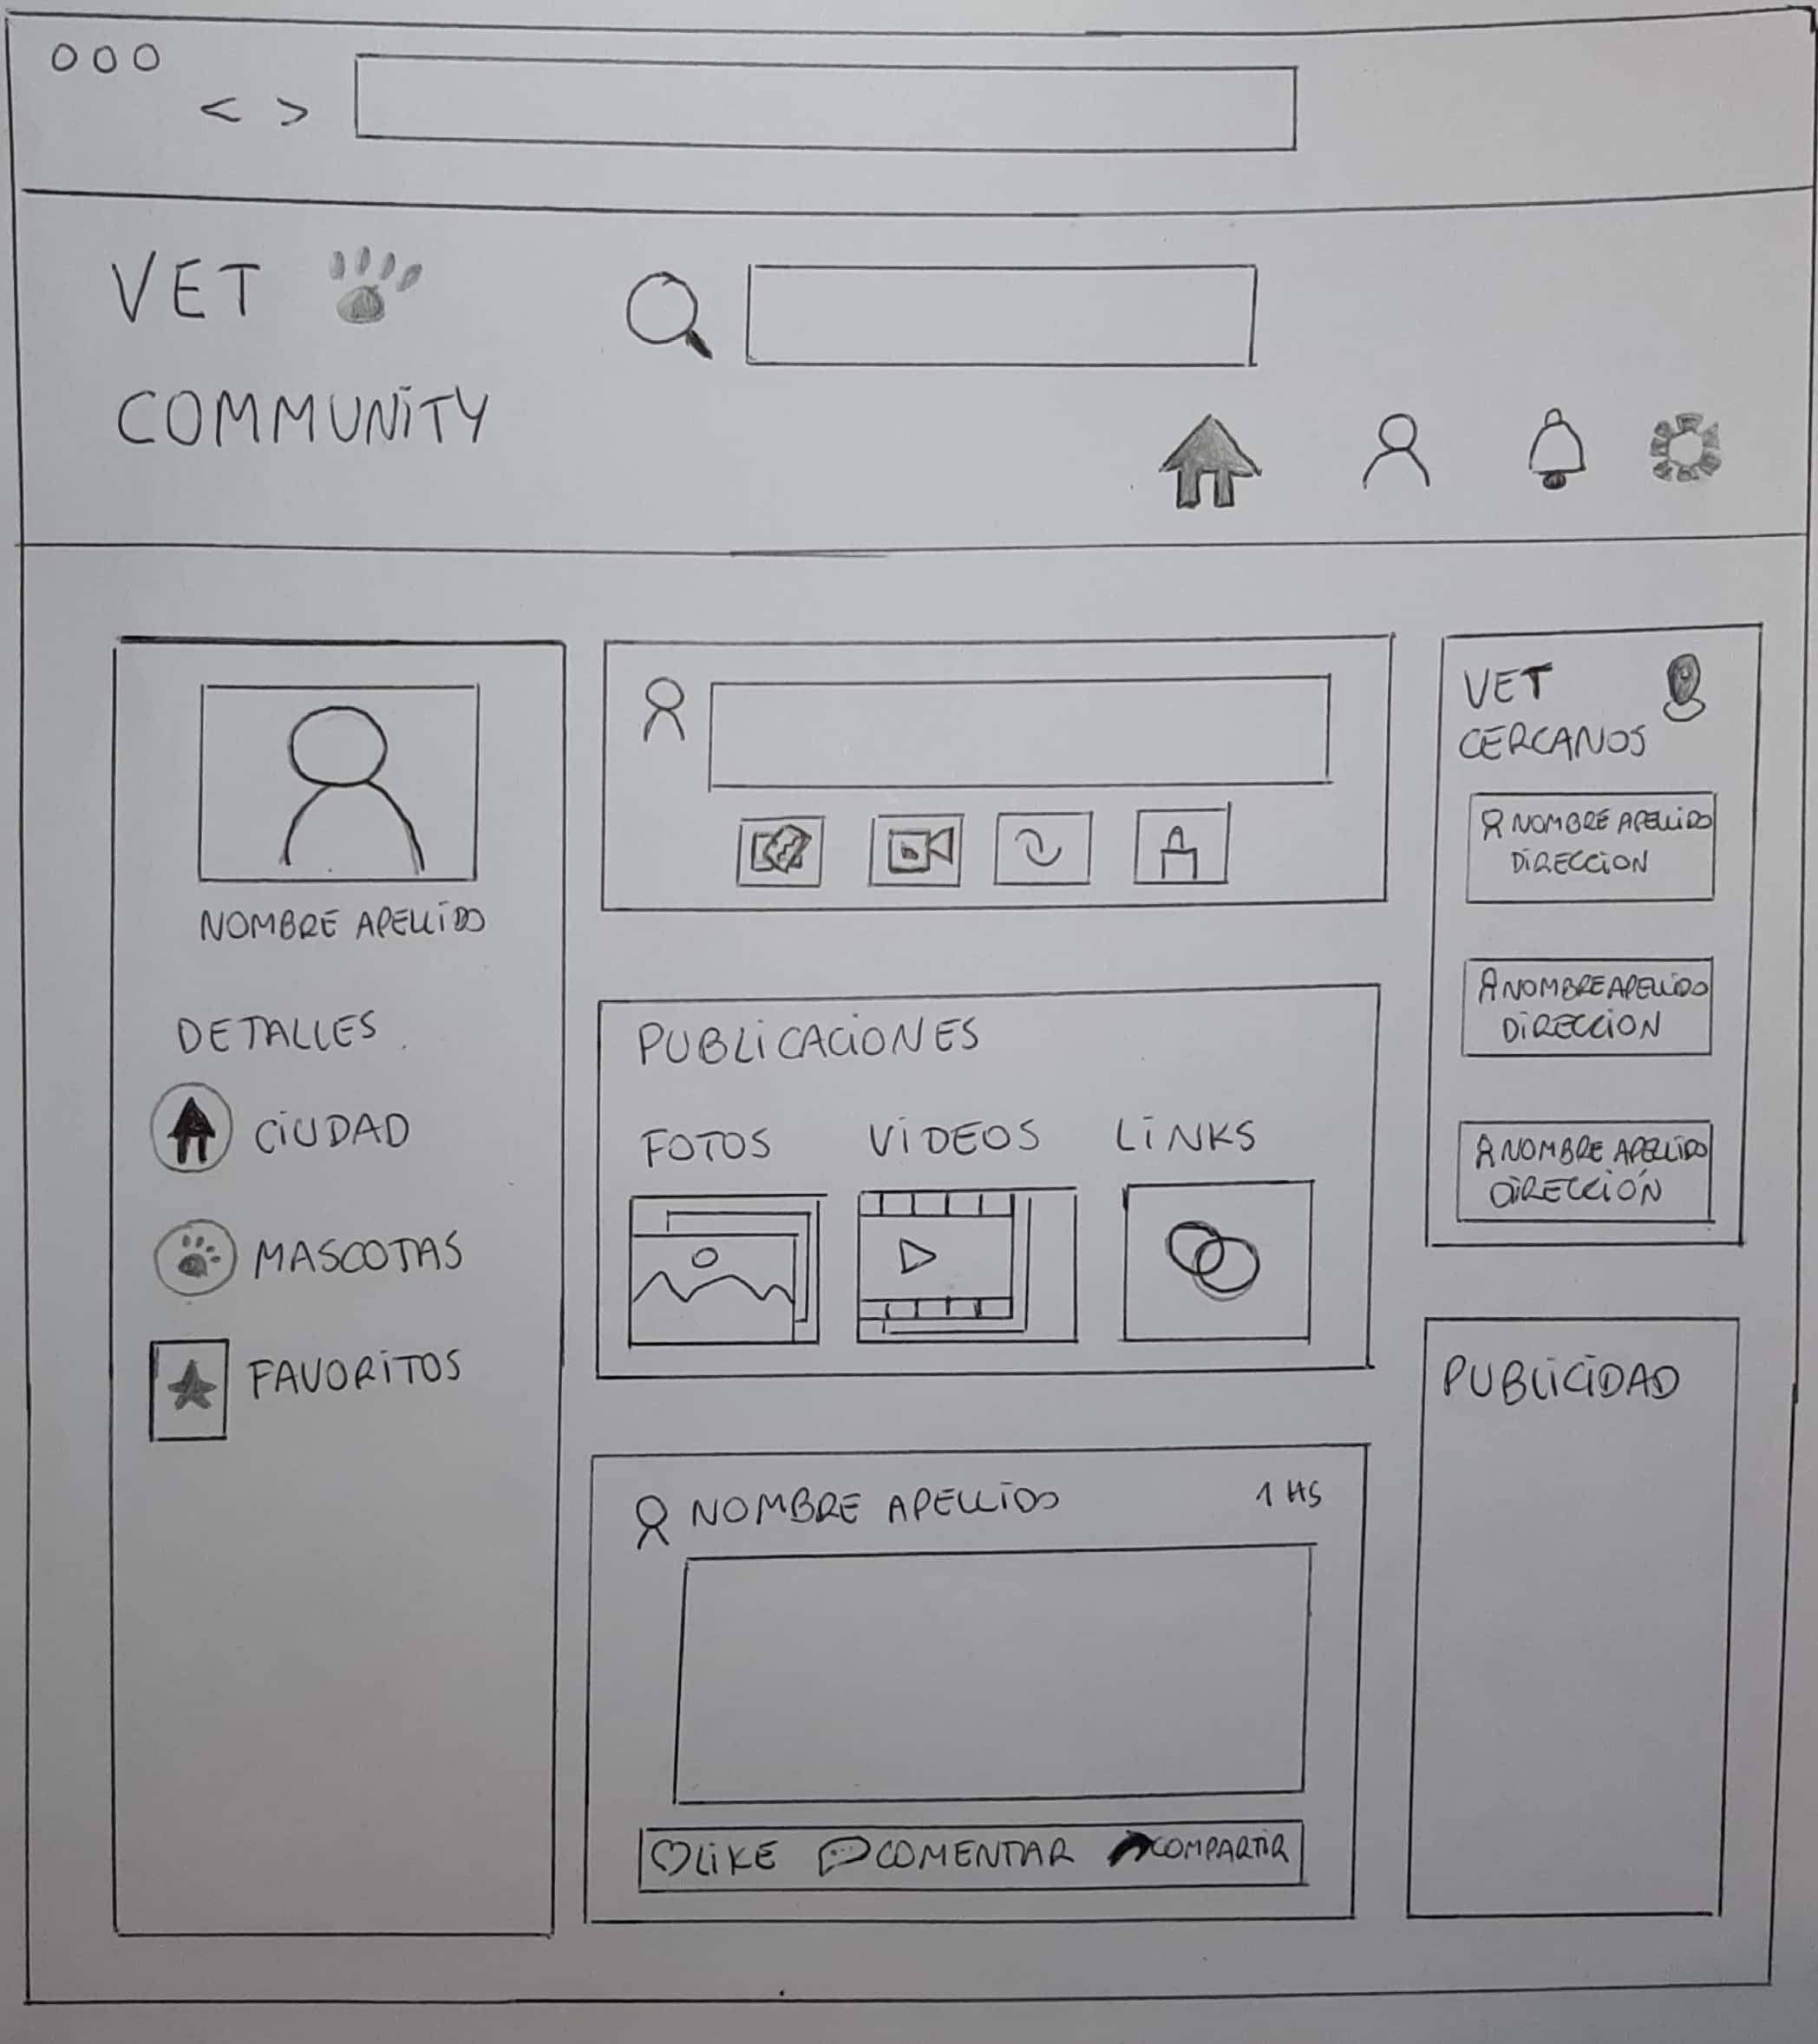 VET
COMMUNITY
NOMBRE APELLIDO
DETALLES
CIUDAD
MASCOTAS
FAVORITOS
PUBLICACIONES
FOTOS VIDEOS LINKS
NOMBRE APELLIDO 1 HS
LIKE COMENTAR COMPARTIR
VET
CERCANOS
NOMBRE APELLIDO
DIRECCION
NOMBRE APELLIDO
DIRECCION
NOMBRE APELLIDO
DIRECCIÓN
PUBLICIDAD